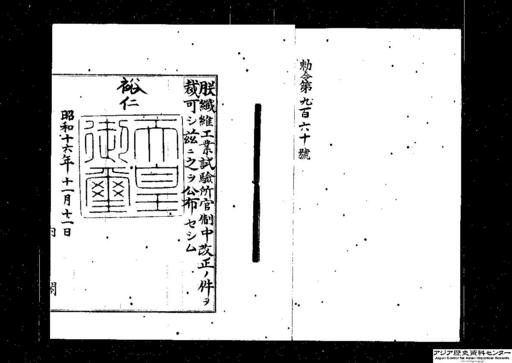 勅令第九百六十號
朕纖維工業試驗所官制中改正ノ件ヲ
裁可シ茲ニ之ヲ公布セシム
裕仁
天皇
御璽
昭和十六年十一月十一日
内閣
アジア歴史資料センター
Japan Center for Asian Historical Records